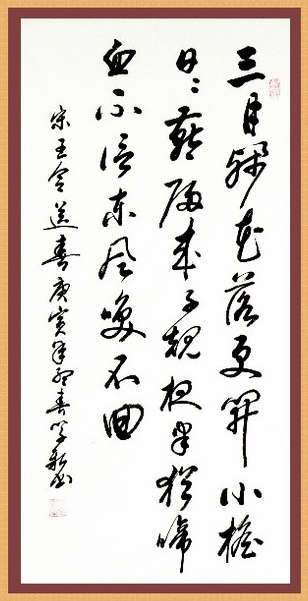 三月殘花落更開小檐
日日燕飛来子規夜半猶啼
血不信東風喚不回
宋王令送春庚寅年春書